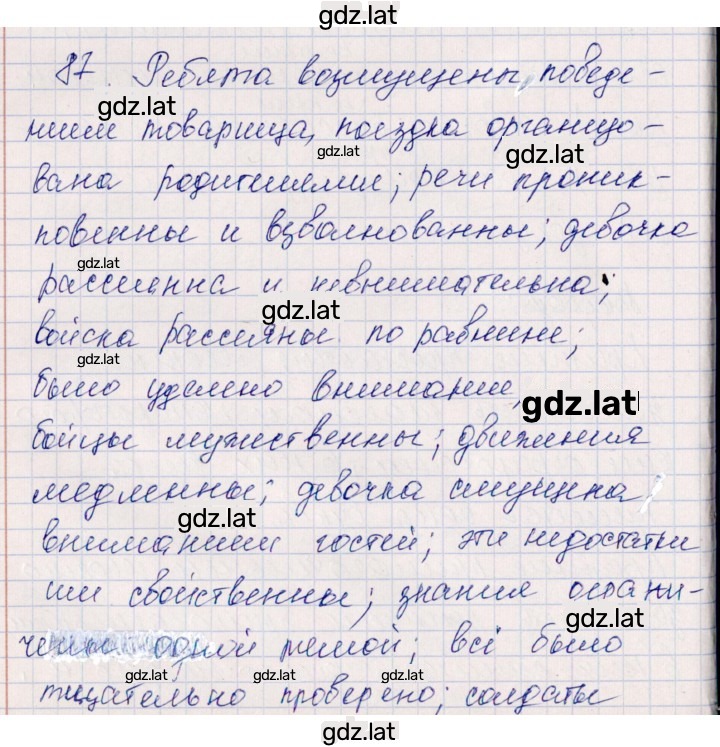 gdz.lat
87. Ребята возмущены поведе-
gdz.lat
нием товарища, поездка организо-
gdz.lat gdz.lat
вана родителями; речи проник-
новенны и взволнованны; девочка
gdz.lat
рассеянна и невнимательна;
gdz.lat
войска рассеяны по равнине;
gdz.lat
было уделено внимание,
gdz.lat
бойцы мужественны; движения
медленны; девочка смущена
gdz.lat
вниманием гостей; эти недостатки
им свойственны; знания ограни-
gdz.lat
чены одной темой; всё было
gdz.lat gdz.lat gdz.lat
тщательно проверено; солдаты
gdz.lat